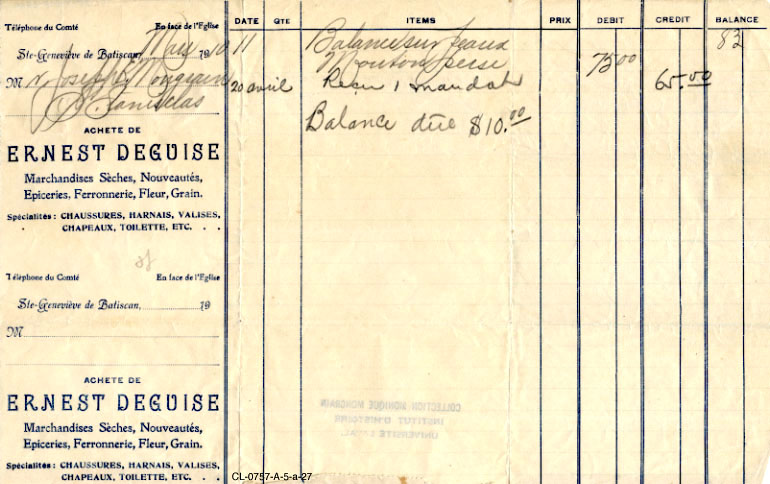 Téléphone du Comté En face de l'Eglise
Ste-Geneviève de Batiscan, Mars 10 1911
M r Joseph Mongrain
St. Stanislas
ACHETE DE
ERNEST DEGUISE
Marchandises Sèches, Nouveautés,
Epiceries, Ferronnerie, Fleur, Grain.
Spécialités: CHAUSSURES, HARNAIS, VALISES,
CHAPEAUX, TOILETTE, ETC. . .
Téléphone du Comté En face de l'Eglise
Ste-Geneviève de Batiscan, 19
M
ACHETE DE
ERNEST DEGUISE
Marchandises Sèches, Nouveautés,
Epiceries, Ferronnerie, Fleur, Grain.
Spécialités: CHAUSSURES, HARNAIS, VALISES,
CHAPEAUX, TOILETTE, ETC. . .
DATE QTE ITEMS PRIX DEBIT CREDIT BALANCE
83
Balance sur peaux
Mouton perse 75 00
20 avril Recu 1 mandat 65.00
Balance dûe $10.00
COLLECTION MONIQUE MONGRAIN
INSTITUT D'HISTOIRE
UNIVERSITE LAVAL
CL-0757-A-5-a-27